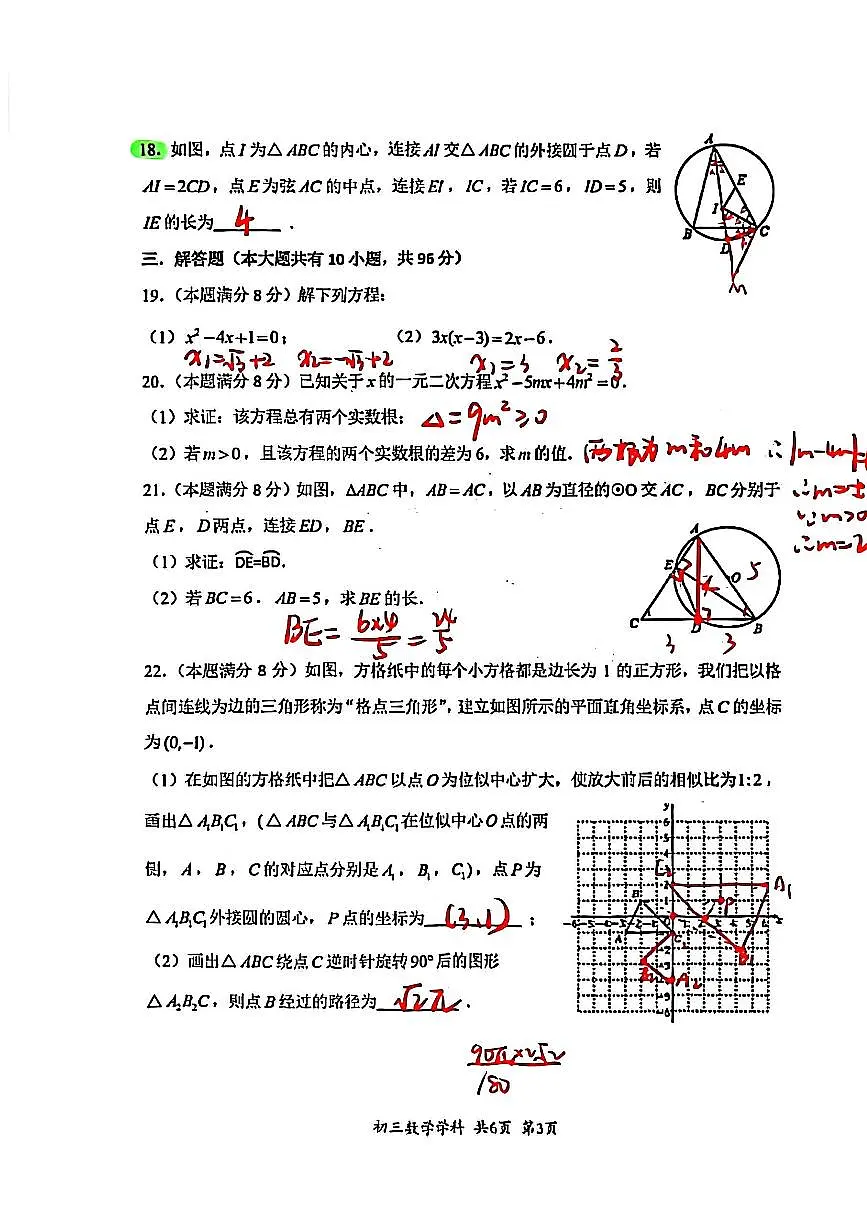 18. 如图，点I为△ABC的内心，连接AI交△ABC的外接圆于点D，若
AI=2CD，点E为弦AC的中点，连接EI，IC，若IC=6，ID=5，则
IE的长为 4 ．
A
E
I
B
C
D
M
三．解答题（本大题共有10小题，共96分）
19．（本题满分8分）解下列方程：
（1）x²-4x+1=0； （2）3x(x-3)=2x-6．
x₁=√3+2 x₂=-√3+2 x₁=3 x₂=2/3
20．（本题满分8分）已知关于x的一元二次方程x²-5mx+4m²=0．
（1）求证：该方程总有两个实数根； △=9m²≥0
（2）若m>0，且该方程的两个实数根的差为6，求m的值． 两根为m和4m ∴|m-4m|
∴m=±
∵m>0
∴m=2
21．（本题满分8分）如图，△ABC中，AB=AC，以AB为直径的⊙O交AC，BC分别于
点E，D两点，连接ED，BE．
（1）求证：DE=BD．
（2）若BC=6．AB=5，求BE的长．
BE=6×4/5=24/5
A
E
O 5
4
C
D
B
3 3
22．（本题满分8分）如图，方格纸中的每个小方格都是边长为1的正方形，我们把以格
点间连线为边的三角形称为“格点三角形”，建立如图所示的平面直角坐标系，点C的坐标
为(0,-1)．
（1）在如图的方格纸中把△ABC以点O为位似中心扩大，使放大前后的相似比为1:2，
画出△A₁B₁C₁，（△ABC与△A₁B₁C₁在位似中心O点的两
侧，A，B，C的对应点分别是A₁，B₁，C₁），点P为
△A₁B₁C₁外接圆的圆心，P点的坐标为 (3,1) ；
（2）画出△ABC绕点C逆时针旋转90°后的图形
△A₂B₂C，则点B经过的路径为 √2π ．
y
A₁
B
P
A
C
B₁
B₂
A₂
90π×2√2
/180
初三数学学科 共6页 第3页